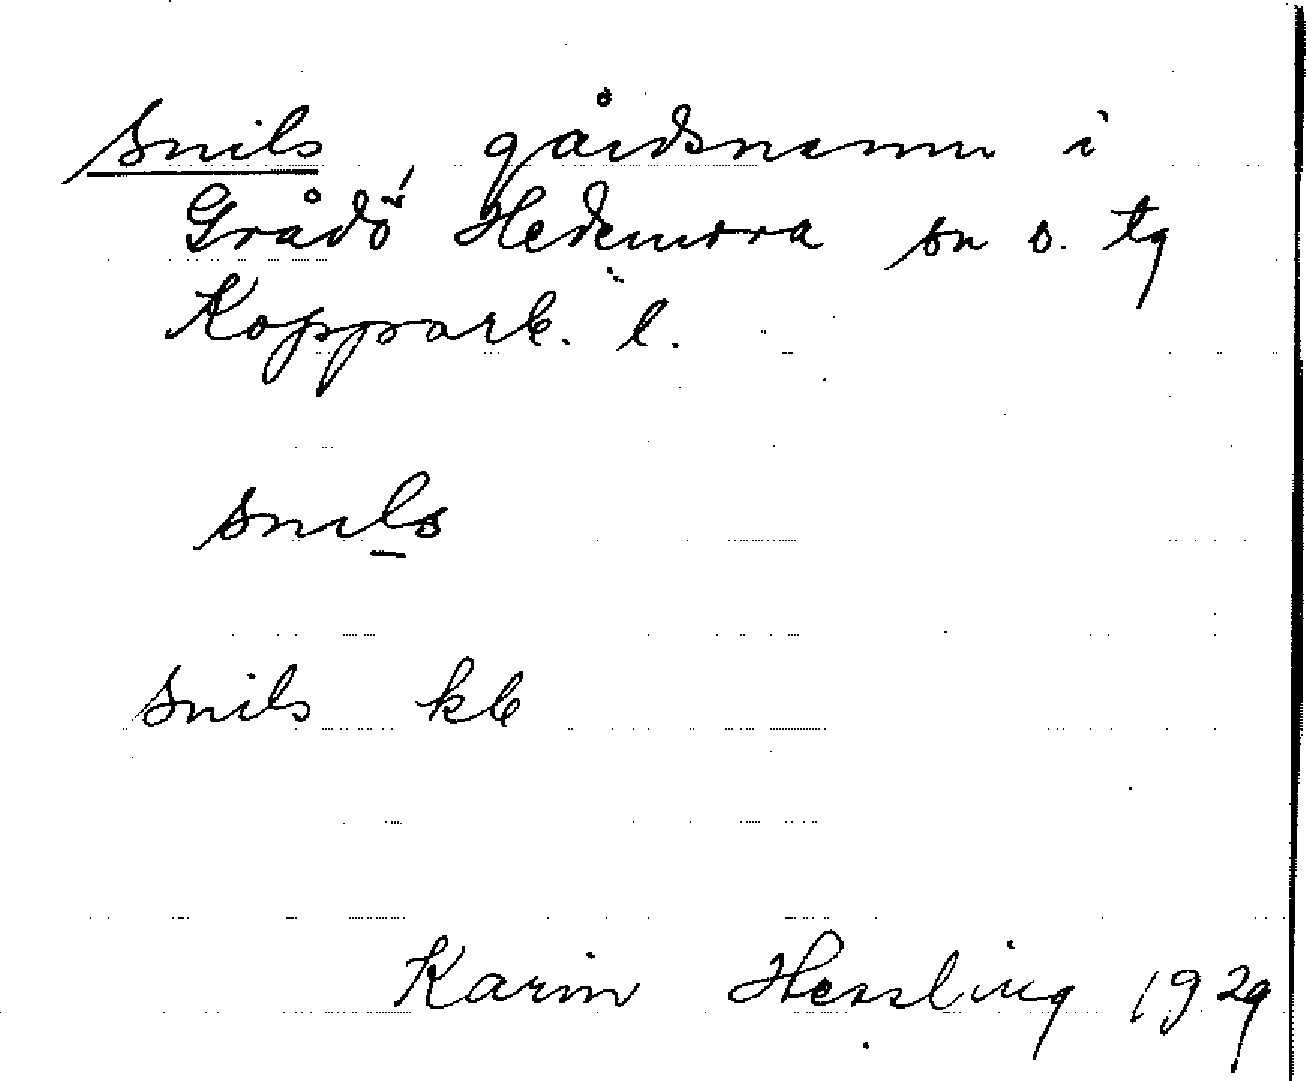 Snils, gårdsnamn i
Grådö Hedemora sn o. tg
Kopparb. l.
snils
Snils kb
Karin Hessling 1929